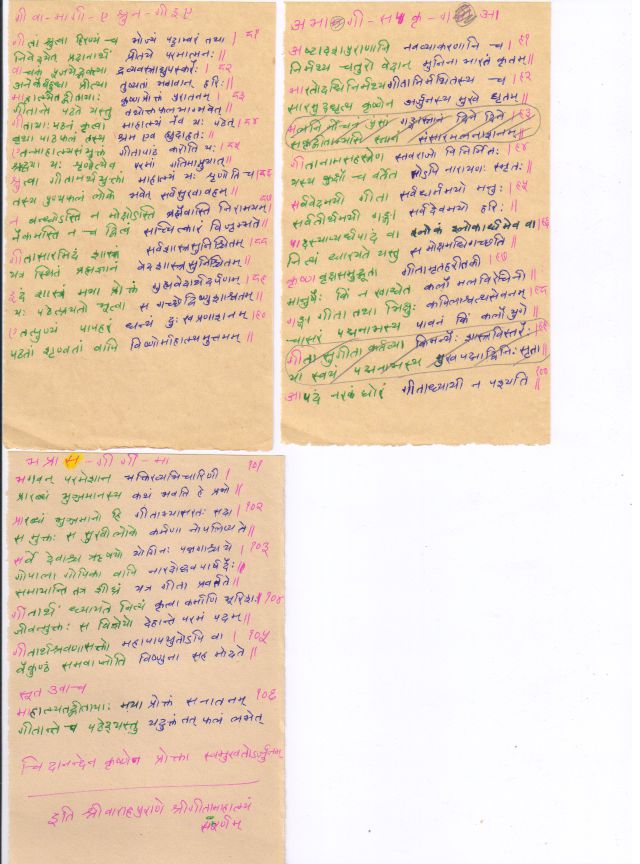 गी वा - मा गी - ए श्रु न - गी इ ए
गीतां श्रुत्वा हिरण्यं च भोज्यं पट्टाम्बरं तथा । ८१
निवेदयेत् प्रदानार्थं प्रीतये परमात्मनः ॥
वाचकं पूजयेद्भक्त्या द्रव्यवस्त्राद्युपस्करैः । ८२
अनेकैर्बहुधा प्रीत्या तुष्यतां भगवान् हरिः ॥
माहात्म्यमेतद्गीतायाः कृष्णप्रोक्तं पुरातनम् । ८३
गीतान्ते पठते यस्तु यथोक्तफलभाग्भवेत् ॥
गीतायाः पठनं कृत्वा माहात्म्यं नैव यः पठेत् । ८४
वृथा पाठफलं तस्य श्रम एव ह्युदाहृतः ॥
एतन्माहात्म्यसंयुक्तं गीतापाठं करोति यः । ८५
श्रद्धया यः शृणोत्येव परमां गतिमाप्नुयात् ॥
श्रुत्वा गीतामर्थयुक्तां माहात्म्यं यः शृणोति च । ८६
तस्य पुण्यफलं लोके भवेत् सर्वसुखावहम् ॥
न बन्धोऽस्ति न मोक्षोऽस्ति ब्रह्मैवास्ति निरामयम् । ८७
नैकमस्ति न च द्वित्वं सच्चित्कारं विजृम्भते ॥
गीतासारमिदं शास्त्रं सर्वशास्त्रसुनिश्चितम् । ८८
यत्र स्थितं ब्रह्मज्ञानं वेदशास्त्रसुनिश्चितम् ॥
इदं शास्त्रं मया प्रोक्तं गुह्यवेदार्थदर्पणम् । ८९
यः पठेत्प्रयतो भूत्वा स गच्छेद्विष्णुशाश्वतम् ॥
एतत्पुण्यं पापहरं धन्यं दुःखप्रणाशनम् । ९०
पठतां शृण्वतां वापि विष्णोर्माहात्म्यमुत्तमम् ॥
अ भा - गी - स कृ - ग आ
अष्टादशपुराणानि नवव्याकरणानि च । ९१
निर्मथ्य चतुरो वेदान् मुनिना भारतं कृतम् ॥
भारतोदधिनिर्मथ्यगीतानिर्मथितस्य च । ९२
सारमुद्धृत्य कृष्णेन अर्जुनस्य मुखे धृतम् ॥
मलनिर्मोचनं पुंसां गङ्गास्नानं दिने दिने । ९३
सकृद्गीताम्भसि स्नानं संसारमलनाशनम् ॥
गीतानामसहस्रेण स्तवराजो विनिर्मितः । ९४
यस्य कुक्षौ च वर्तेत सोऽपि नारायणः स्मृतः ॥
सर्ववेदमयी गीता सर्वधर्ममयो मनुः । ९५
सर्वतीर्थमयी गङ्गा सर्वदेवमयो हरिः ॥
पादस्याप्यर्धपादं वा श्लोकं श्लोकार्धमेव वा । ९६
नित्यं धारयते यस्तु स मोक्षमधिगच्छति ॥
कृष्णवृक्षसमुद्भूता गीतामृतहरीतकी । ९७
मानुषैः किं न खाद्येत कलौ मलविरेचिनी ॥
गङ्गा गीता तथा भिक्षुः कपिलाश्वत्थसेवनम् । ९८
वासरं पद्मनाभस्य पावनं किं कलौ युगे ॥
गीता सुगीता कर्तव्या किमन्यैः शास्त्रविस्तरैः । ९९
या स्वयं पद्मनाभस्य मुखपद्माद्विनिःसृता ॥
आपदं नरकं घोरं गीताध्यायी न पश्यति ॥ १००
भ प्रा स - गी गी - मा
भगवन् परमेशान भक्तिरव्यभिचारिणी । १०१
प्रारब्धं भुञ्जमानस्य कथं भवति हे प्रभो ॥
प्रारब्धं भुञ्जमानो हि गीताभ्यासरतः सदा । १०२
स मुक्तः स सुखी लोके कर्मणा नोपलिप्यते ॥
सर्वे देवाश्च ऋषयो योगिनः पन्नगाश्च ये । १०३
गोपाला गोपिका वापि नारदोद्धवपार्षदैः ॥
समायान्ति तत्र शीघ्रं यत्र गीता प्रवर्तते ॥
गीतार्थं ध्यायते नित्यं कृत्वा कर्माणि भूरिशः । १०४
जीवन्मुक्तः स विज्ञेयो देहान्ते परमं पदम् ॥
गीतार्थश्रवणासक्तो महापापयुतोऽपि वा । १०५
वैकुण्ठं समवाप्नोति विष्णुना सह मोदते ॥
सूत उवाच
माहात्म्यमेतद्गीतायाः मया प्रोक्तं सनातनम् । १०६
गीतान्ते च पठेद्यस्तु यदुक्तं तत् फलं लभेत्
चिदानन्देन कृष्णेन प्रोक्ता स्वमुखतोऽर्जुनम्
इति श्रीवाराहपुराणे श्रीगीतामाहात्म्यं
संपूर्णम्